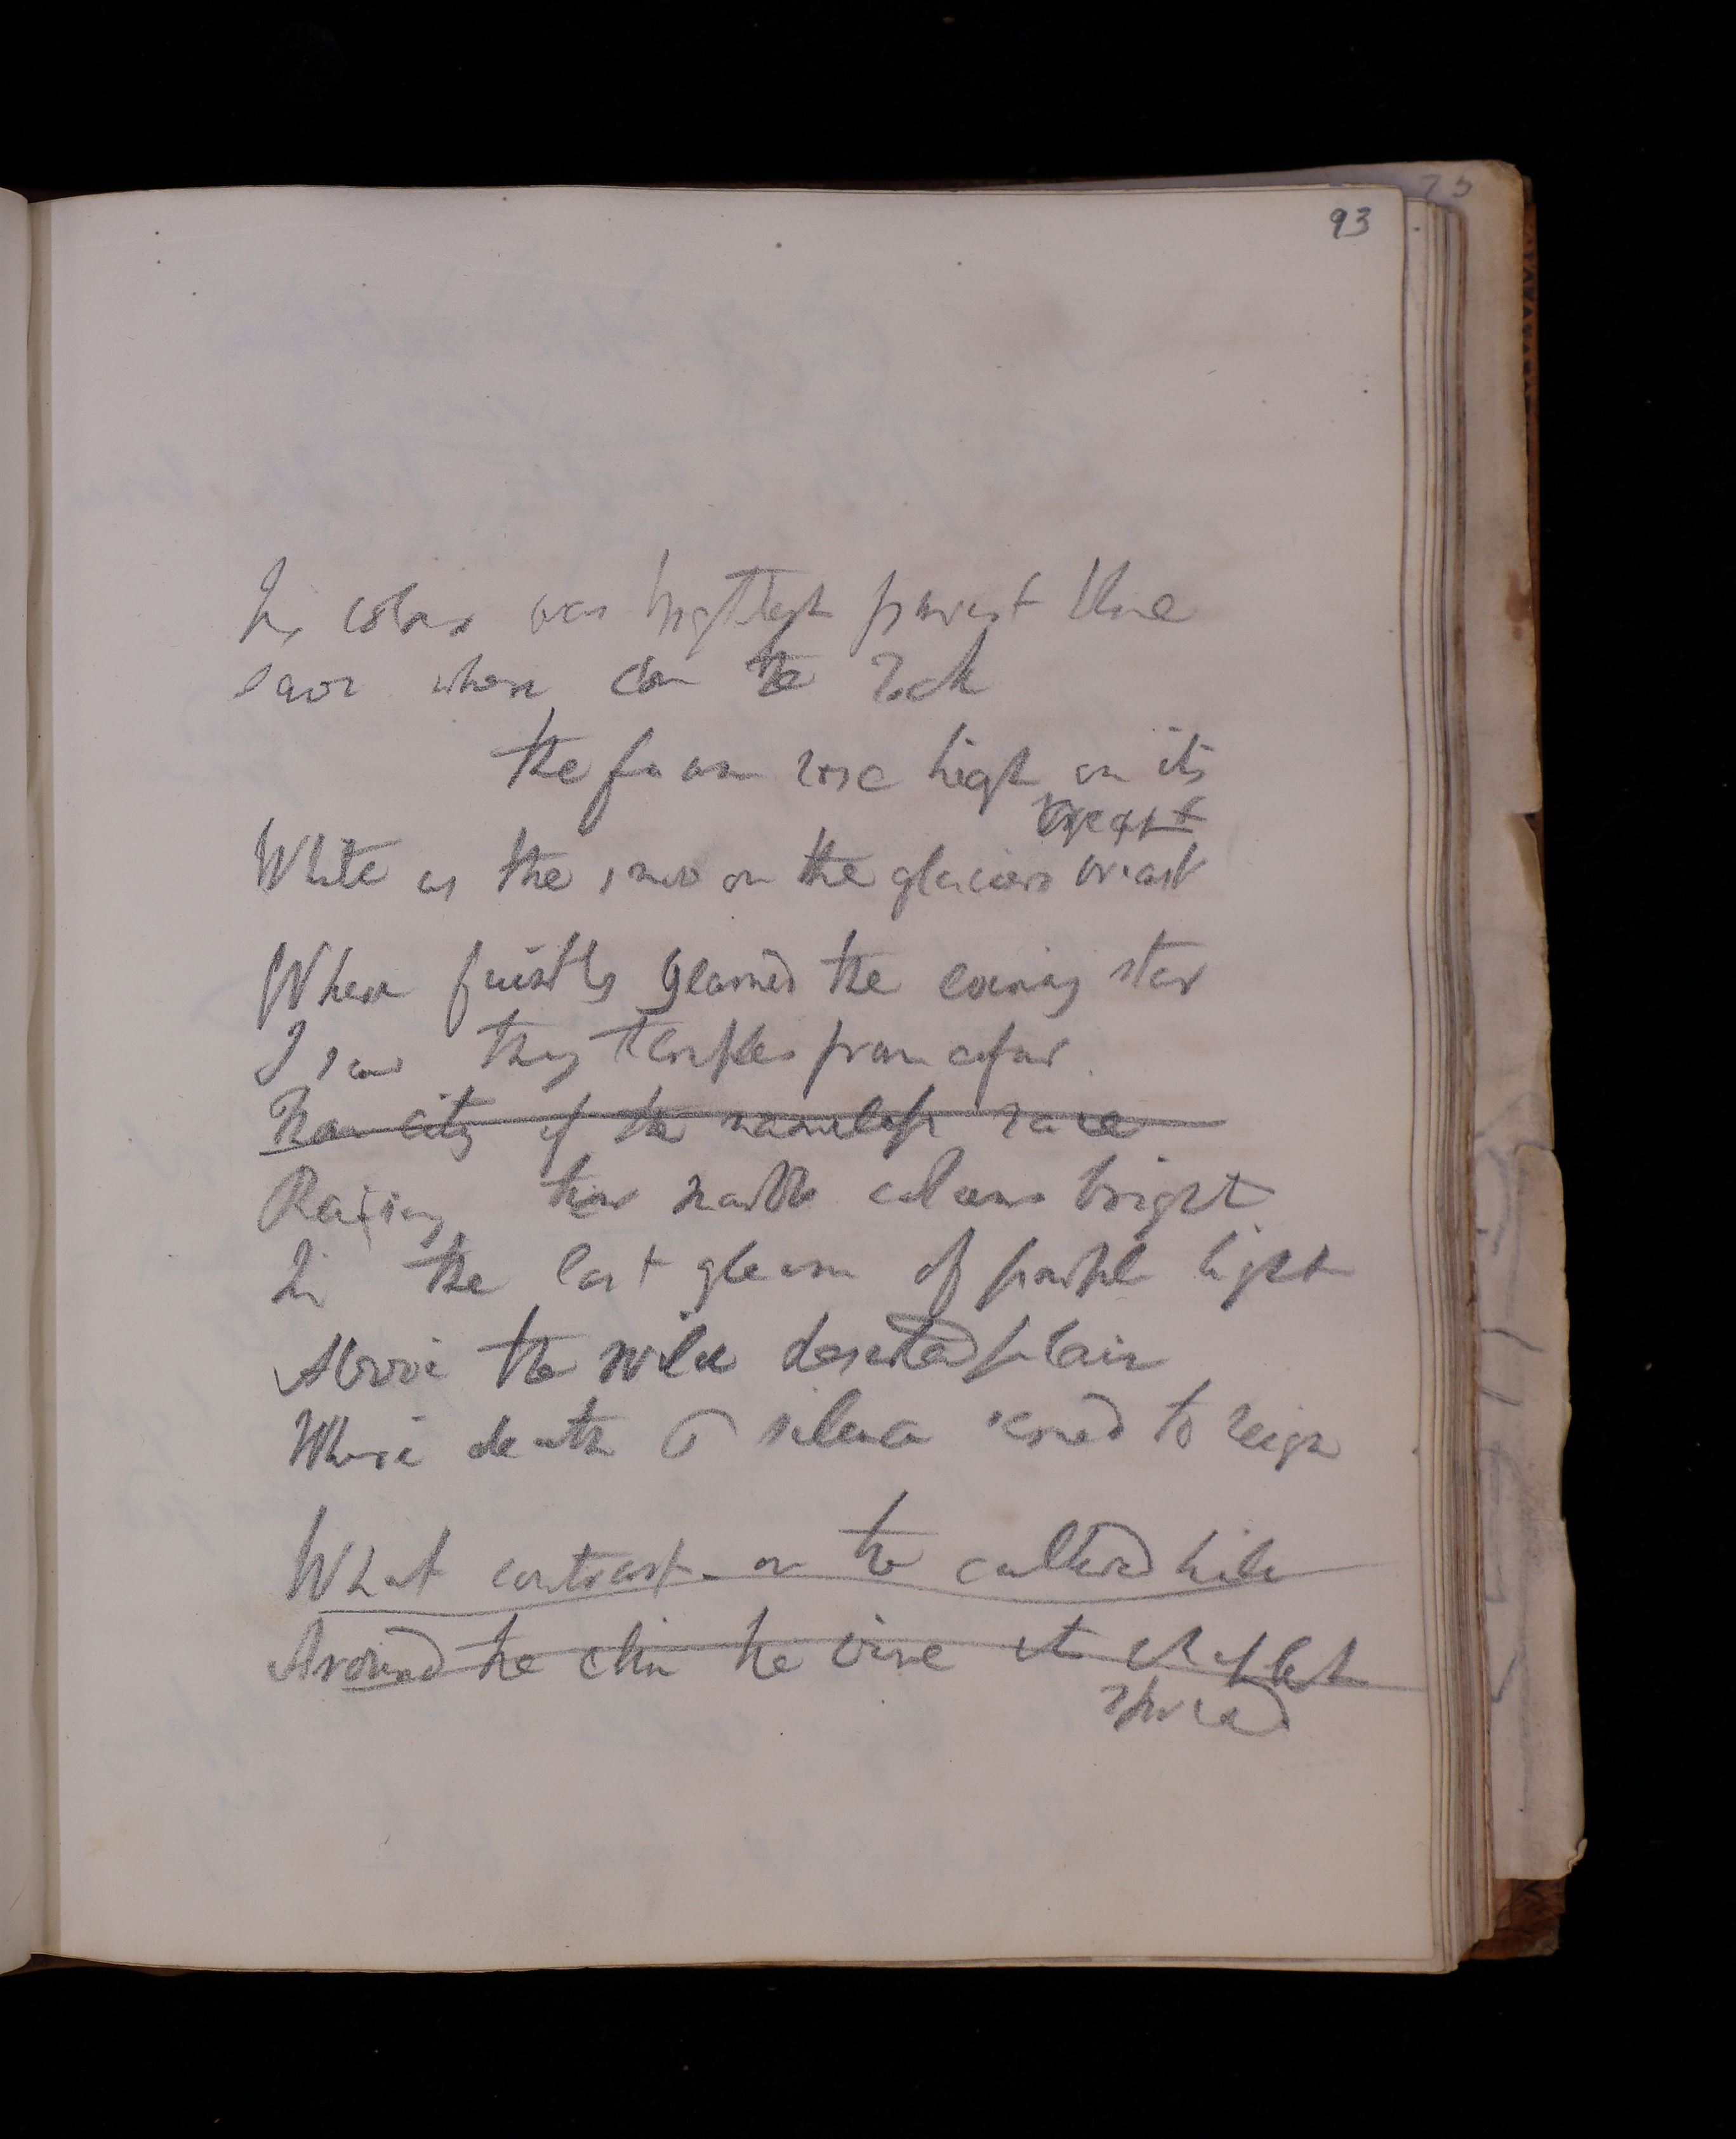 93
75
Its colour was brightest purest blue
save where on the rock
the foam rose high on its
breast
White as the snow on the glaciers breast
When faintly gleamed the evening star
I saw thy temples from afar.
Thou city of the nameless race
Raising their marble colums bright
In the last gleam of partial light
Above the wild deserted plain
Where death & silence seemed to reign
What contrast on the cultured hill
Around the elm the vine its chaplet
spread